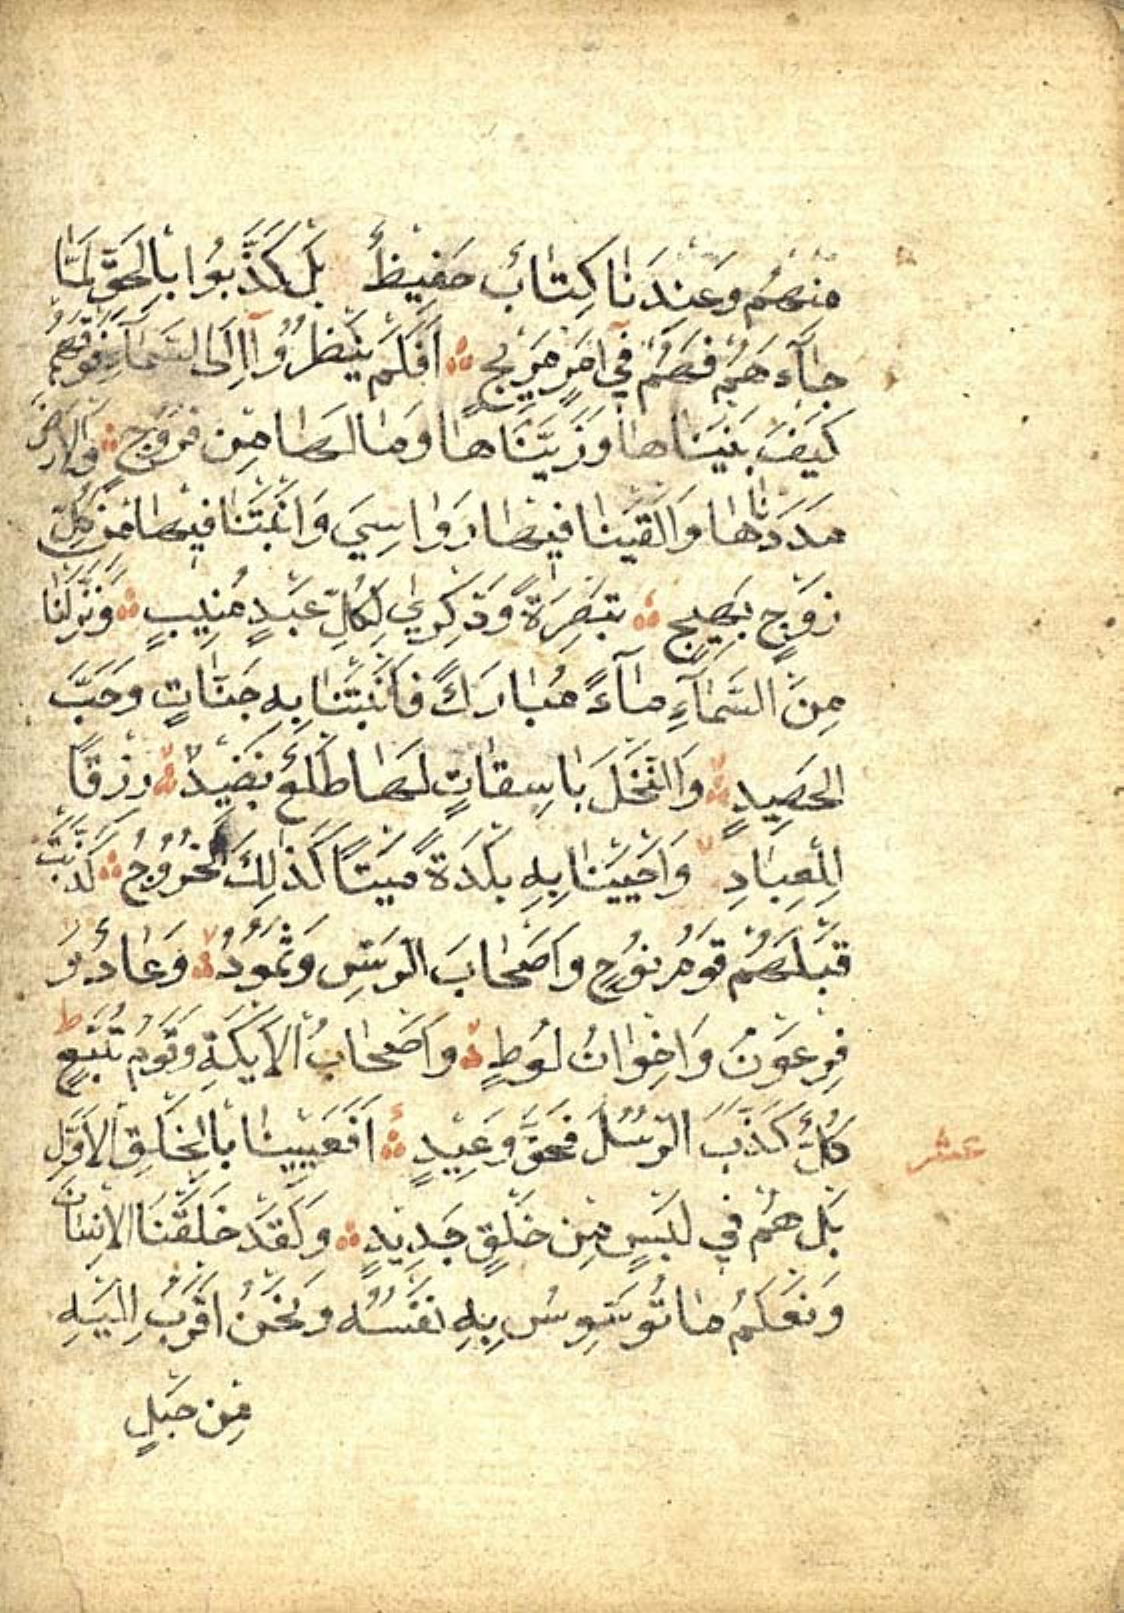 مِنْهُمْ وَعِنْدَنَا كِتَابٌ حَفِيظٌ بَلْ كَذَّبُوا بِالْحَقِّ لَمَّا
جَآءَهُمْ فَهُمْ فِي اَمْرٍ مَرِيجٍ اَفَلَمْ يَنْظُرُوآ اِلَى السَّمَآءِ فَوْقَهُمْ
كَيْفَ بَنَيْنَاهَا وَزَيَّنَّاهَا وَمَا لَهَا مِنْ فُرُوجٍ وَالْاَرْضَ
مَدَدْنَاهَا وَاَلْقَيْنَا فِيهَا رَوَاسِيَ وَاَنْبَتْنَا فِيهَا مِنْ كُلِّ
زَوْجٍ بَهِيجٍ تَبْصِرَةً وَذِكْرٰي لِكُلِّ عَبْدٍ مُنِيبٍ وَنَزَّلْنَا
مِنَ السَّمَآءِ مَآءً مُبَارَكًا فَاَنْبَتْنَا بِهِ جَنَّاتٍ وَحَبَّ
الْحَصِيدِ وَالنَّخْلَ بَاسِقَاتٍ لَهَا طَلْعٌ نَضِيدٌ رِزْقًا
لِلْعِبَادِ وَاَحْيَيْنَا بِهِ بَلْدَةً مَيْتًا كَذٰلِكَ الْخُرُوجُ كَذَّبَتْ
قَبْلَهُمْ قَوْمُ نُوحٍ وَاَصْحَابَ الرَّسِّ وَثَمُودُ وَعَادٌ وَ
فِرْعَوْنُ وَاِخْوَانُ لُوطٍ وَاَصْحَابُ الْاَيْكَةِ وَقَوْمُ تُبَّعٍ ط
كُلٌّ كَذَّبَ الرُّسُلَ فَحَقَّ وَعِيدٍ اَفَعَيِينَا بِالْخَلْقِ الْاَوَّلِ
عشر
بَلْ هُمْ فِي لَبْسٍ مِنْ خَلْقٍ جَدِيدٍ وَلَقَدْ خَلَقْنَا الْاِنْسَانَ
وَنَعْلَمُ مَا تُوَسْوِسُ بِهِ نَفْسُهُ وَنَحْنُ اَقْرَبُ اِلَيْهِ
مِنْ حَبْلِ